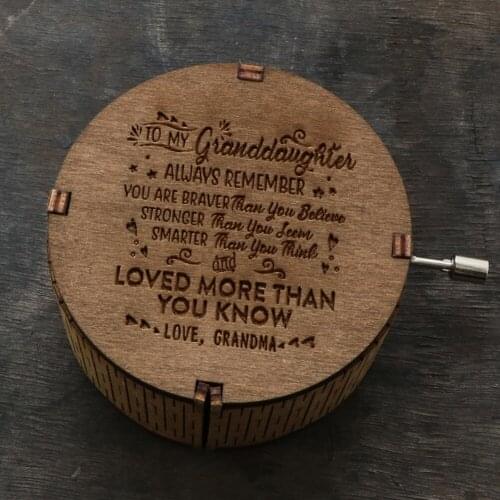 TO MY Granddaughter
ALWAYS REMEMBER
YOU ARE BRAVER Than You Believe
STRONGER Than You Seem
SMARTER Than You Think
and
LOVED MORE THAN
YOU KNOW
LOVE, GRANDMA